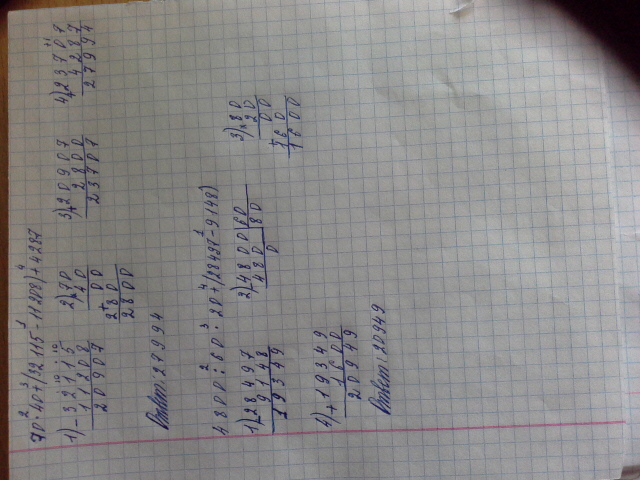 70·40+(32115-11208)+4287
1) -32115
11208
20907
2) ×70
40
00
+
280
2800
3) +20907
2800
23707
4) +23707
4287
27994
Ответ: 27994
4800:60·20+(28497-9148)
1) -28497
9148
19349
2) 4800|60
480 |80
0
3) ×80
20
00
+
160
1600
4) +19349
1600
20949
Ответ: 20949